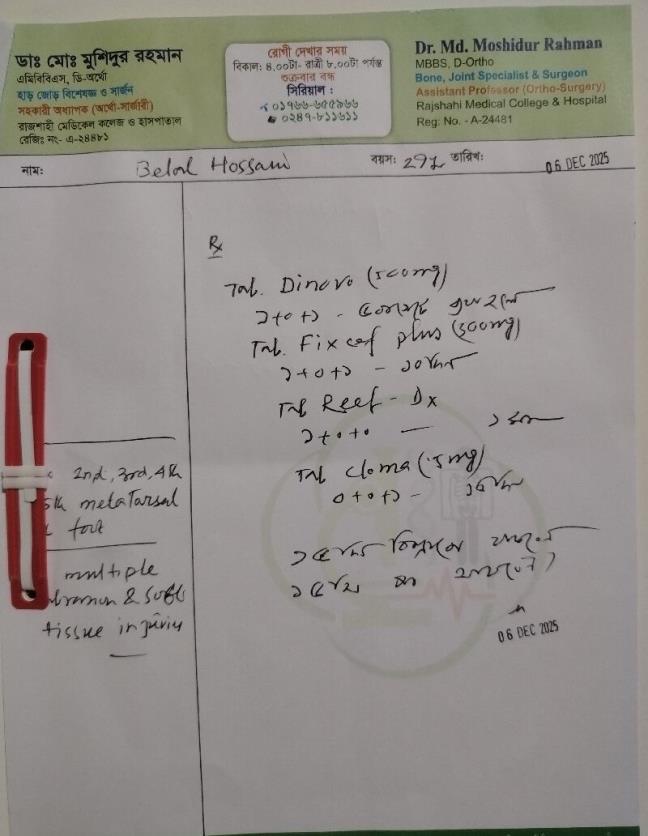 ডাঃ মোঃ মুশিদুর রহমান
এমিবিবিএস, ডি-অর্থো
হাড় জোড় বিশেষজ্ঞ ও সার্জন
সহকারী অধ্যাপক (অর্থো-সার্জারী)
রাজশাহী মেডিকেল কলেজ ও হাসপাতাল
রেজিঃ নং- এ-২৪৪৮১
রোগী দেখার সময়
বিকাল: ৪.০০টা- রাত্রী ৮.০০টা পর্যন্ত
শুক্রবার বন্ধ
সিরিয়াল :
০১৭৬৬-৬৫৫৯৬৬
০২৪৭-৮১১৬১১
Dr. Md. Moshidur Rahman
MBBS, D-Ortho
Bone, Joint Specialist & Surgeon
Assistant Professor (Ortho-Surgery)
Rajshahi Medical College & Hospital
Reg: No. - A-24481
নাম: Belal Hossain বয়স: 29y তারিখ: 06 DEC 2025
2nd, 3rd, 4th
5th metatarsal
foot
multiple
& soft
tissue injuriy
Rx
Tab. Dinovo (500mg)
১+০+১ -
Tab. Fixcef plus (500mg)
১+০+১ - ১০দিন
Tab Reef - Dx
১+০+০ —
Tab Cloma (.5mg)
০+০+১ - ১৫দিন
১৫দিন বিশ্রামে থাকবেন
১৫দিন
06 DEC 2025